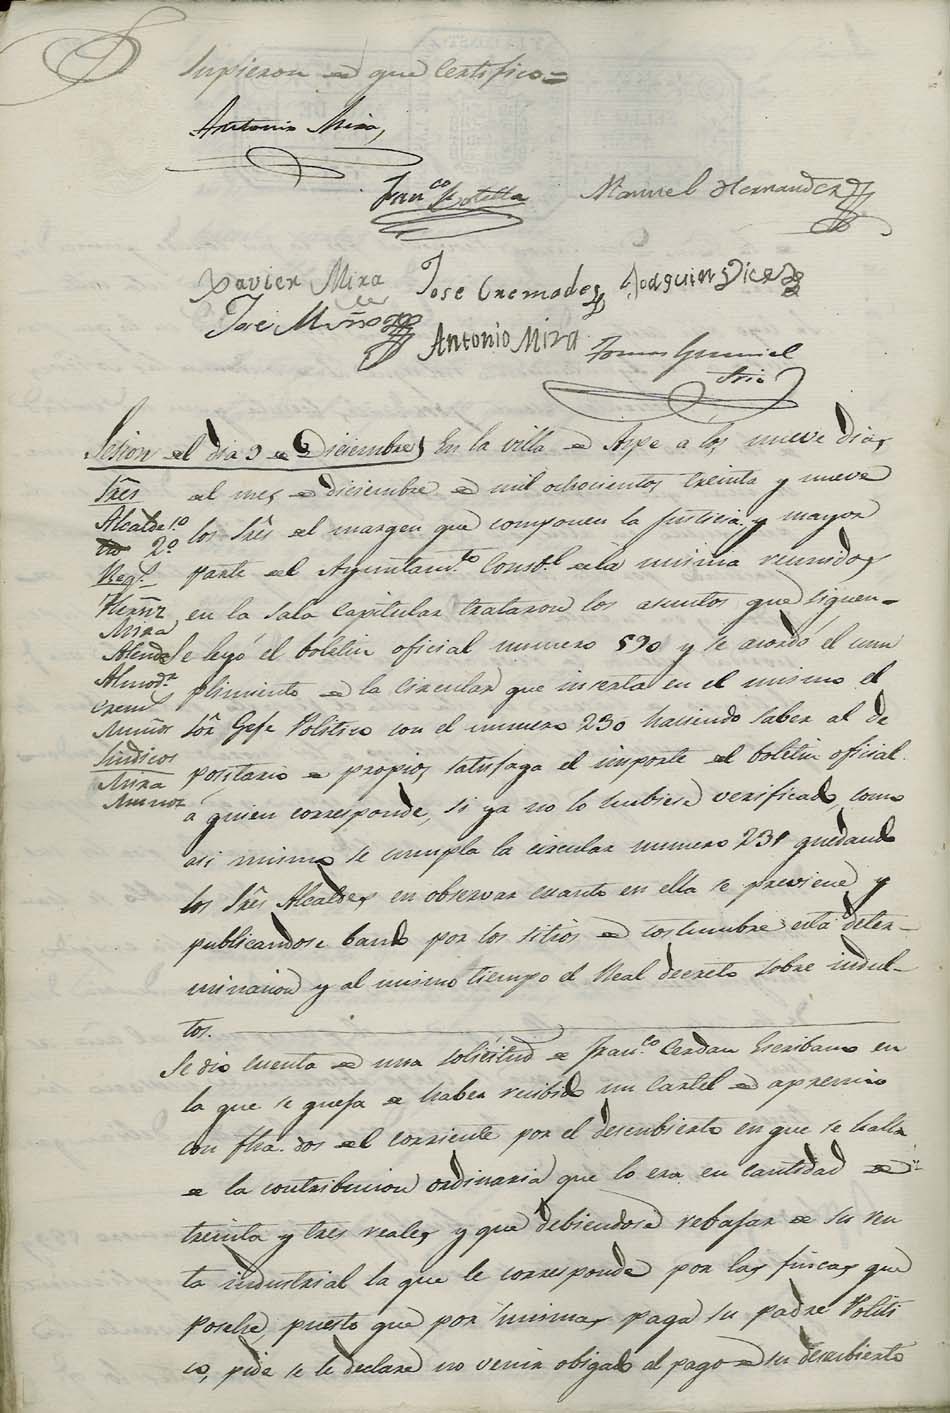 supieron de que Certifico=
Antonio Mira
Fran.co Botella
Manuel Hernandez
Xavier Mira
Jose Cremades
Joaquin
Jose Muñoz
Antonio Mira
Tomas
Srio
Sesion del dia 9 de Diciembre
En la villa de Aspe a los nueve dias
Sres
del mes de diciembre de mil ochocientos treinta y nueve
Alcalde 1.o
los Sres del margen que componen la Justicia y mayor
2.o
Reg.s
parte del Ayuntam.to Const.l de la misma reunidos
Hernz
en la Sala Capitular trataron los asuntos que siguen=
Mira
Se leyó el boletin oficial numero 590 y se acordó el cum
Almod.r
plimiento de la Circular que inserta en el mismo el
Crem.s
Muñoz
Sôr Gefe Politico con el numero 230 haciendo saber al de
Sindicos
positario de propios satisfaga el importe del boletin oficial
Mira
Munoz
á quien corresponde, si ya no lo hubiese verificado, como
asi mismo se cumpla la circular numero 231 quedando
los Sres Alcaldes en observar cuanto en ella se previene y
publicandose bando por los sitios de costumbre esta deter-
minacion y al mismo tiempo el Real decreto sobre indul-
tos.
Se dio cuenta de una solicitud de Fran.co Cerdan Escribano en
la que se queja de haber recibido un Cartel de apremio
con fha. dos del corriente por el descubierto en que se halla
de la contribucion ordinaria que lo era en cantidad de
treinta y tres reales y que debiendose rebajar de su ren
ta industrial la que le corresponde por las fincas que
Posehe, puesto que por mismas paga su padre Politi
co, pide se le declare no venir obligado al pago de su descubierto